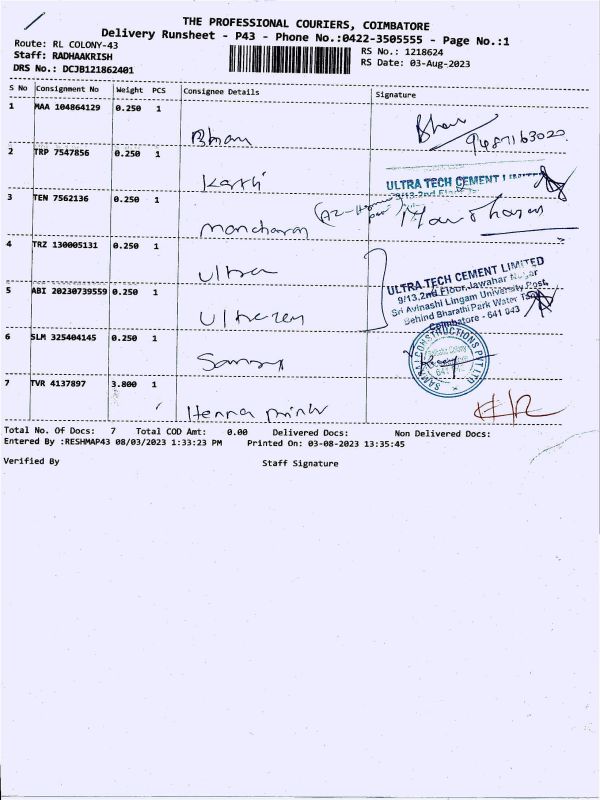 THE PROFESSIONAL COURIERS, COIMBATORE
Delivery Runsheet - P43 - Phone No.:0422-3505555 - Page No.:1
Route: RL COLONY-43
RS No.: 1218624
Staff: RADHAAKRISH
RS Date: 03-Aug-2023
DRS No.: DCJB121862401
S No Consignment No Weight PCS Consignee Details Signature
1 MAA 104864129 0.250 1
9487163020
2 TRP 7547856 0.250 1
ULTRA TECH CEMENT LIMITED
3 TEN 7562136 0.250 1
4 TRZ 130005131 0.250 1 Ultra
ULTRA TECH CEMENT LIMITED
9/13, 2nd Floor, Jawahar Nagar
Sri Avinashi Lingam University Post,
Behind Bharathi Park Water Tank
Coimbatore - 641 043
5 ABI 20230739559 0.250 1
6 SLM 325404145 0.250 1
CONSTRUCTIONS PVT LTD
7 TVR 4137897 3.800 1
Total No. Of Docs: 7 Total COD Amt: 0.00 Delivered Docs: Non Delivered Docs:
Entered By :RESHMAP43 08/03/2023 1:33:23 PM Printed On: 03-08-2023 13:35:45
Verified By Staff Signature